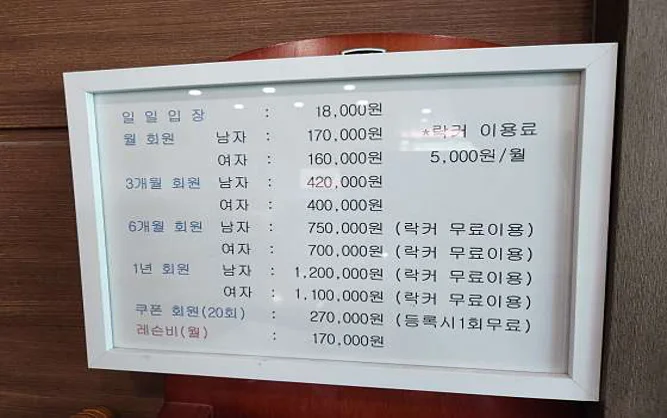 일 일 입 장 : 18,000원
월 회원 남자 : 170,000원 *락커 이용료
여자 : 160,000원 5,000원/월
3개월 회원 남자 : 420,000원
여자 : 400,000원
6개월 회원 남자 : 750,000원 (락커 무료이용)
여자 : 700,000원 (락커 무료이용)
1년 회원 남자 : 1,200,000원 (락커 무료이용)
여자 : 1,100,000원 (락커 무료이용)
쿠폰 회원(20회) : 270,000원 (등록시1회무료)
레슨비(월) : 170,000원